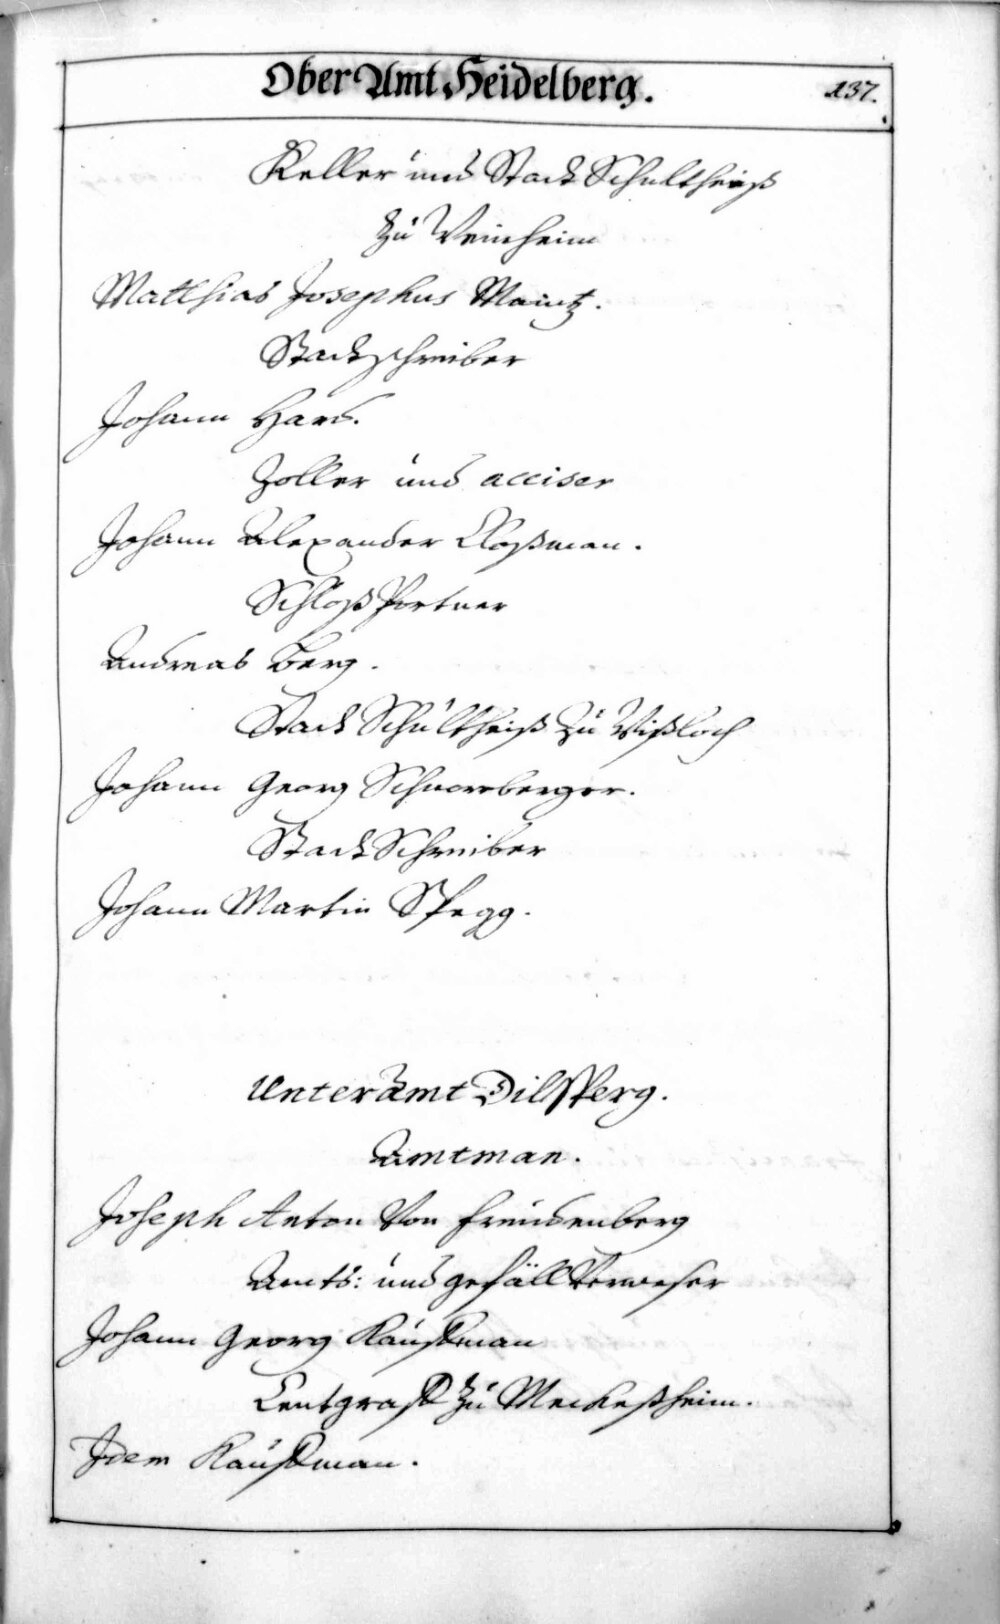 Ober Amt Heidelberg.
137.
Keller und Stadt Schultheiß
zu Weinheim
Matthias Josephus Maintz.
Stadtschreiber
Johann Hard.
Zoller und acciser
Johann Alexander Cloßman.
Schloß Portner
Andreas Berg.
Stadt Schultheiß zu Wißloch
Johann Georg Schnornberger.
Stadt Schreiber
Johann Martin Spegg.
Unter Amt Dilsperg.
Amtman.
Joseph Anton Von freudenberg
Amts: und gefäll Verweser
Johann Georg Kauffman
Centgraff zu Meckeßheim.
Idem Kauffman.